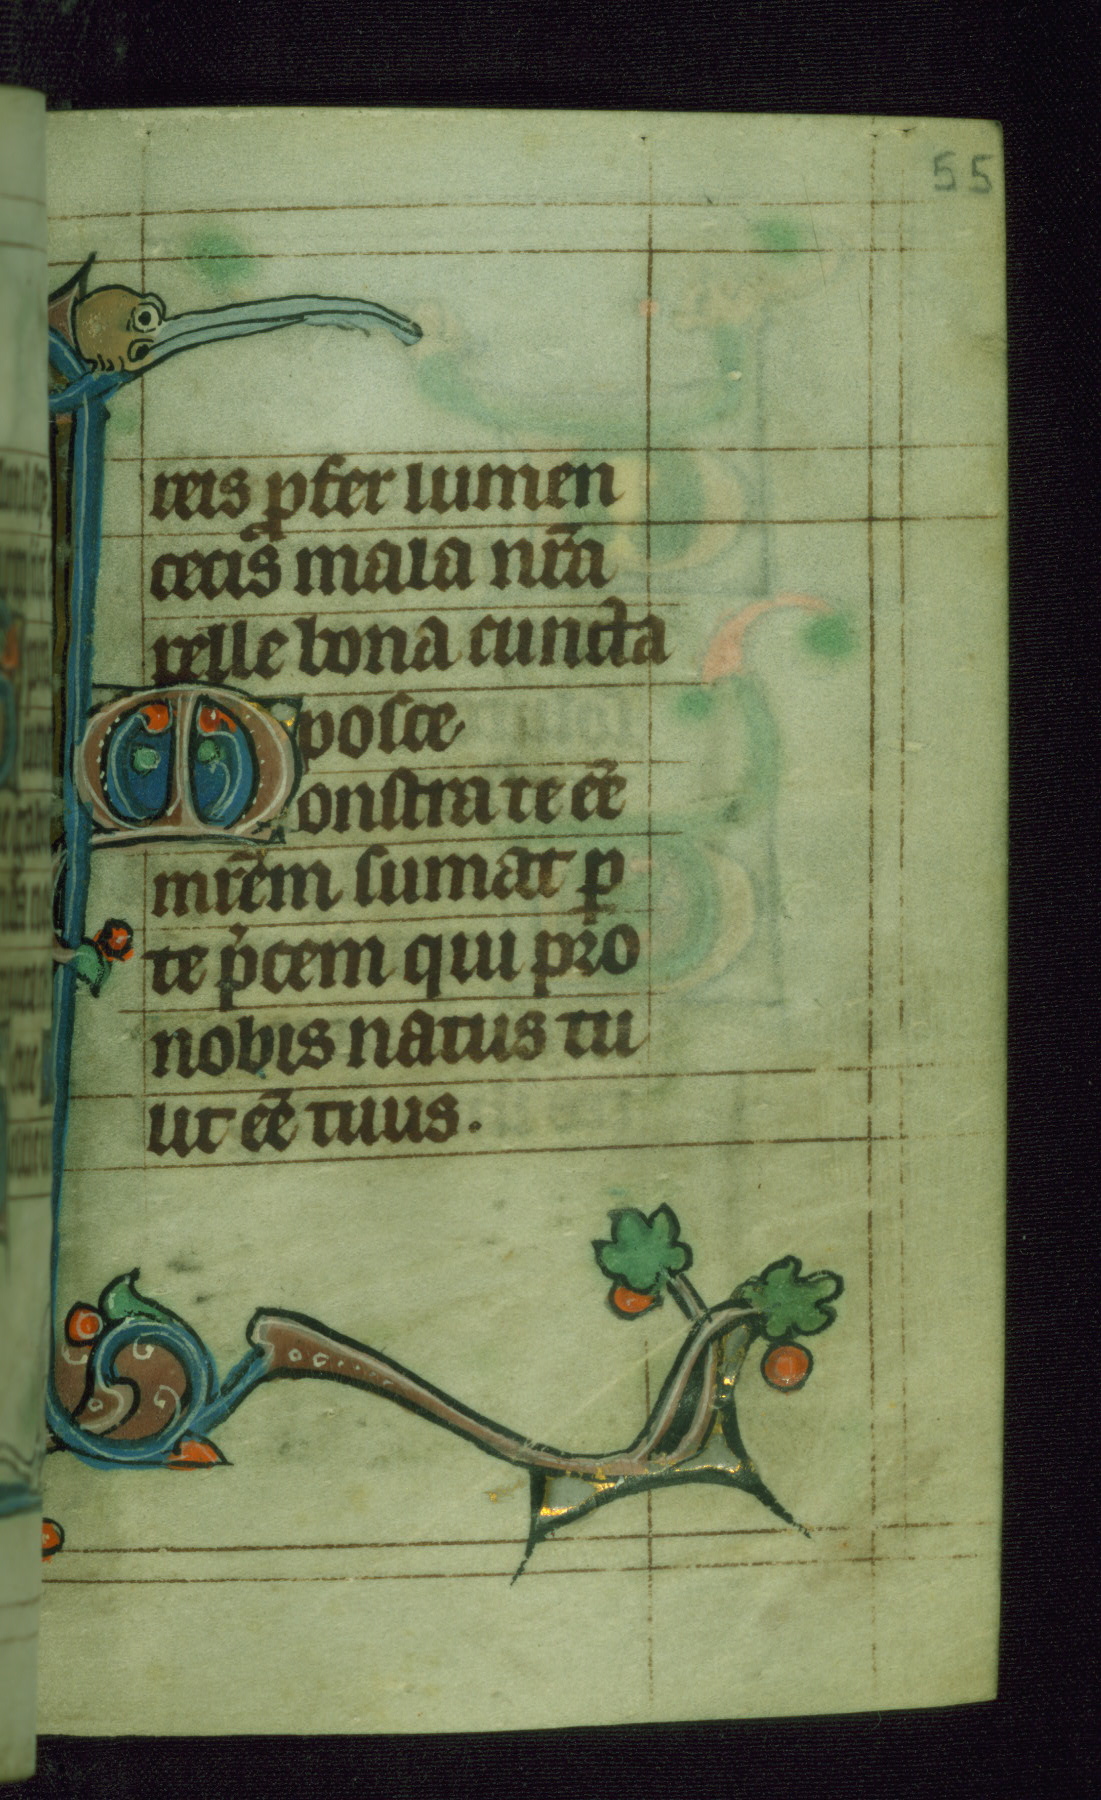 55
reis ꝑfer lumen
cecis mala nr̄a
pelle bona cuncta
posce
Monstra te eē
mr̄em sumat ꝑ
te p̄cem qui pro
nobis natus tu
lit eē tuus.